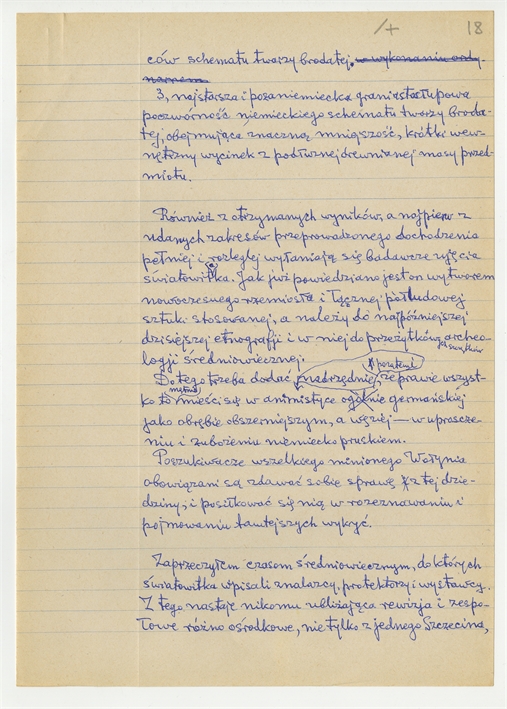 /+ 18
ców schematu twarzy brodatej. w wykonaniu ordy-
narnem
3, najstarsza i pozaniemiecka graniastosłupowa
poczwórność niemieckiego schematu twarzy broda-
tej, obejmująca znaczną mniejszość, krótki wew-
nętrzny wycinek z podłużnej drewnianej masy przed-
miotu.
Również z otrzymanych wyników, a najpierw z
udanych zakresów przeprowadzonego dochodzenia
pełniej i rozleglej wyłaniają się badawcze ujęcia
światowitka. Jak już powiedziano jest on wytworem
nowoczesnego rzemiosła i łącznej półludowej
sztuki stosowanej, a należy do najpóźniejszej
dzisiejszej etnografji i w niej do przeżytków archeo-
logji średniowiecznej.
Do tego trzeba dodać nadrzędnie, że prawie wszyst-
ko to mieści się w animistyce ogólnie germańskiej
jako obrębie obszerniejszym, a węziej — w uproszcze-
niu i zubożeniu niemiecko pruskiem.
Poszukiwacze wszelkiego minionego Wotynia
obowiązani są zdawać sobie sprawę z tej dzie-
dziny, i posiłkować się nią w rozeznawaniu i
pojmowaniu tamtejszych wykryć.
Zaprzeczyłem czasom średniowiecznym, do których
światowitka wpisali znalazcy, protektorzy i wystawcy.
Z tego nastaje nikomu ubliżająca rewizja i zespo-
łowe różno ośrodkowe, nie tylko z jednego Szczecina,